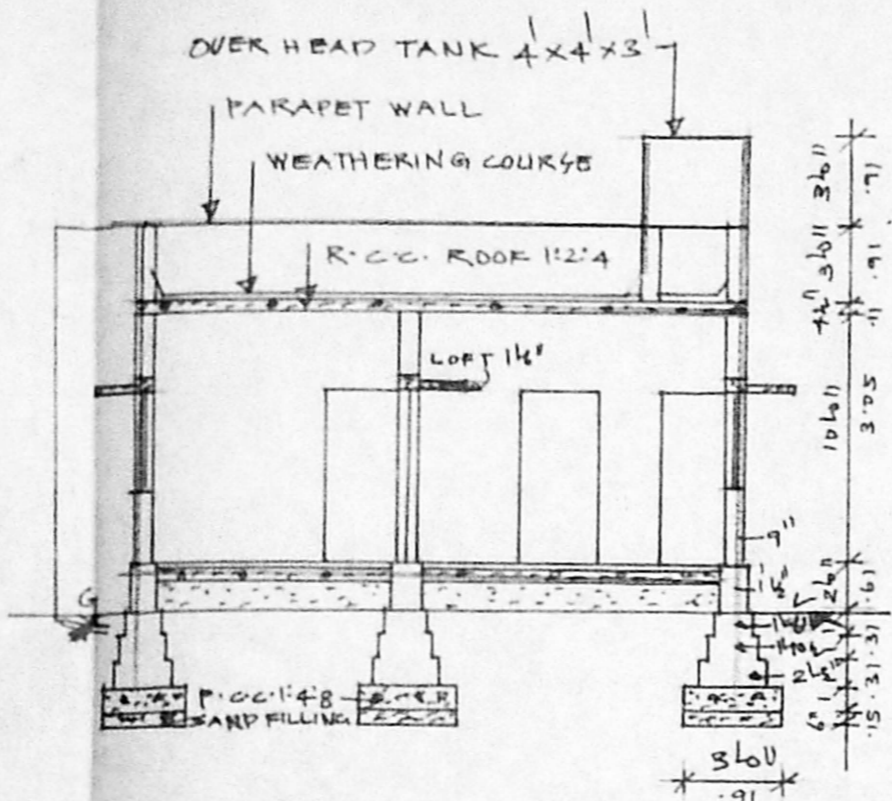 OVER HEAD TANK 4'x4'x3'
PARAPET WALL
WEATHERING COURSE
R.C.C. ROOF 1:2:4
LOFT 1½"
P.C.C. 1:4:8
SAND FILLING
3'0"
.91
3'0"
.91
4½"
.11
10'0"
3.05
9"
2'0"
.61
.31
.31
6"
.15
3'0"
.91